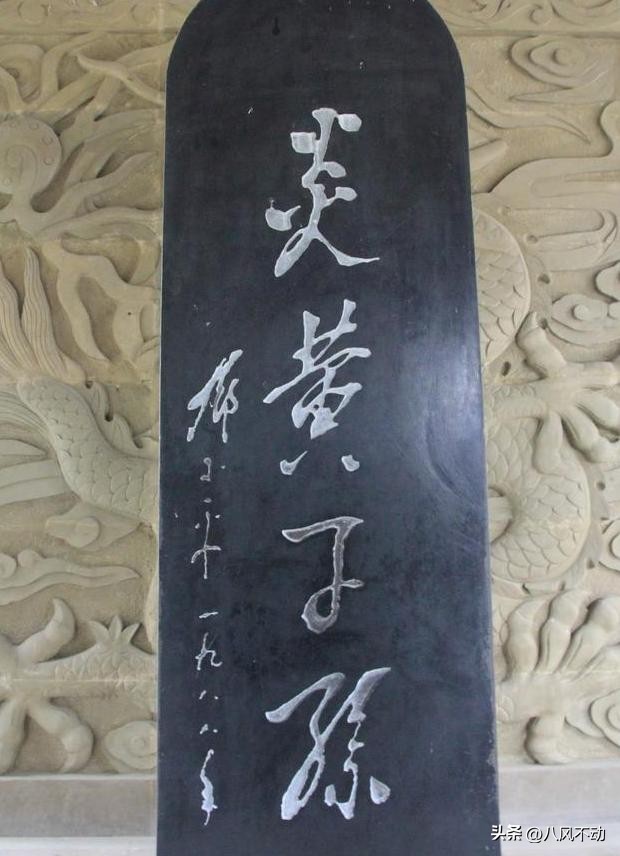 炎黄子孙
邓小平一九八八年
头条 @八风不动